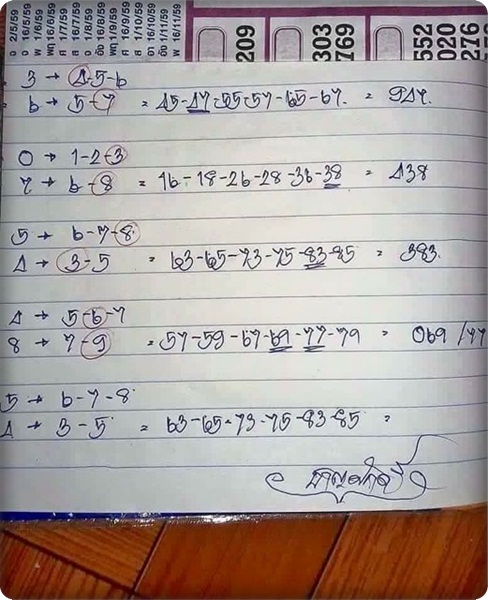 อ 2/5/59
อ 16/5/59
พ 1/6/59
พฤ 16/6/59
ศ 1/7/59
ส 16/7/59
อัง 16/8/59
พฤ 1/9/59
ศ 16/9/59
ส 1/10/59
อา 16/10/59
อัง 1/11/59
พ 16/11/59
209
303
769
552
020
276
3 → 4-5-6
6 → 5-7 = 45-47-55-57-65-67. = 947.
0 → 1-2-3
7 → 6-8 = 16-18-26-28-36-38 = 438
5 → 6-7-8.
4 → 3-5 = 63-65-73-75-83-85 = 383.
4 → 5-6-7
8 → 7-9 = 57-59-67-69-77-79 = 069 /77
5 → 6-7-8.
4 → 3-5 = 63-65-73-75-83-85 =